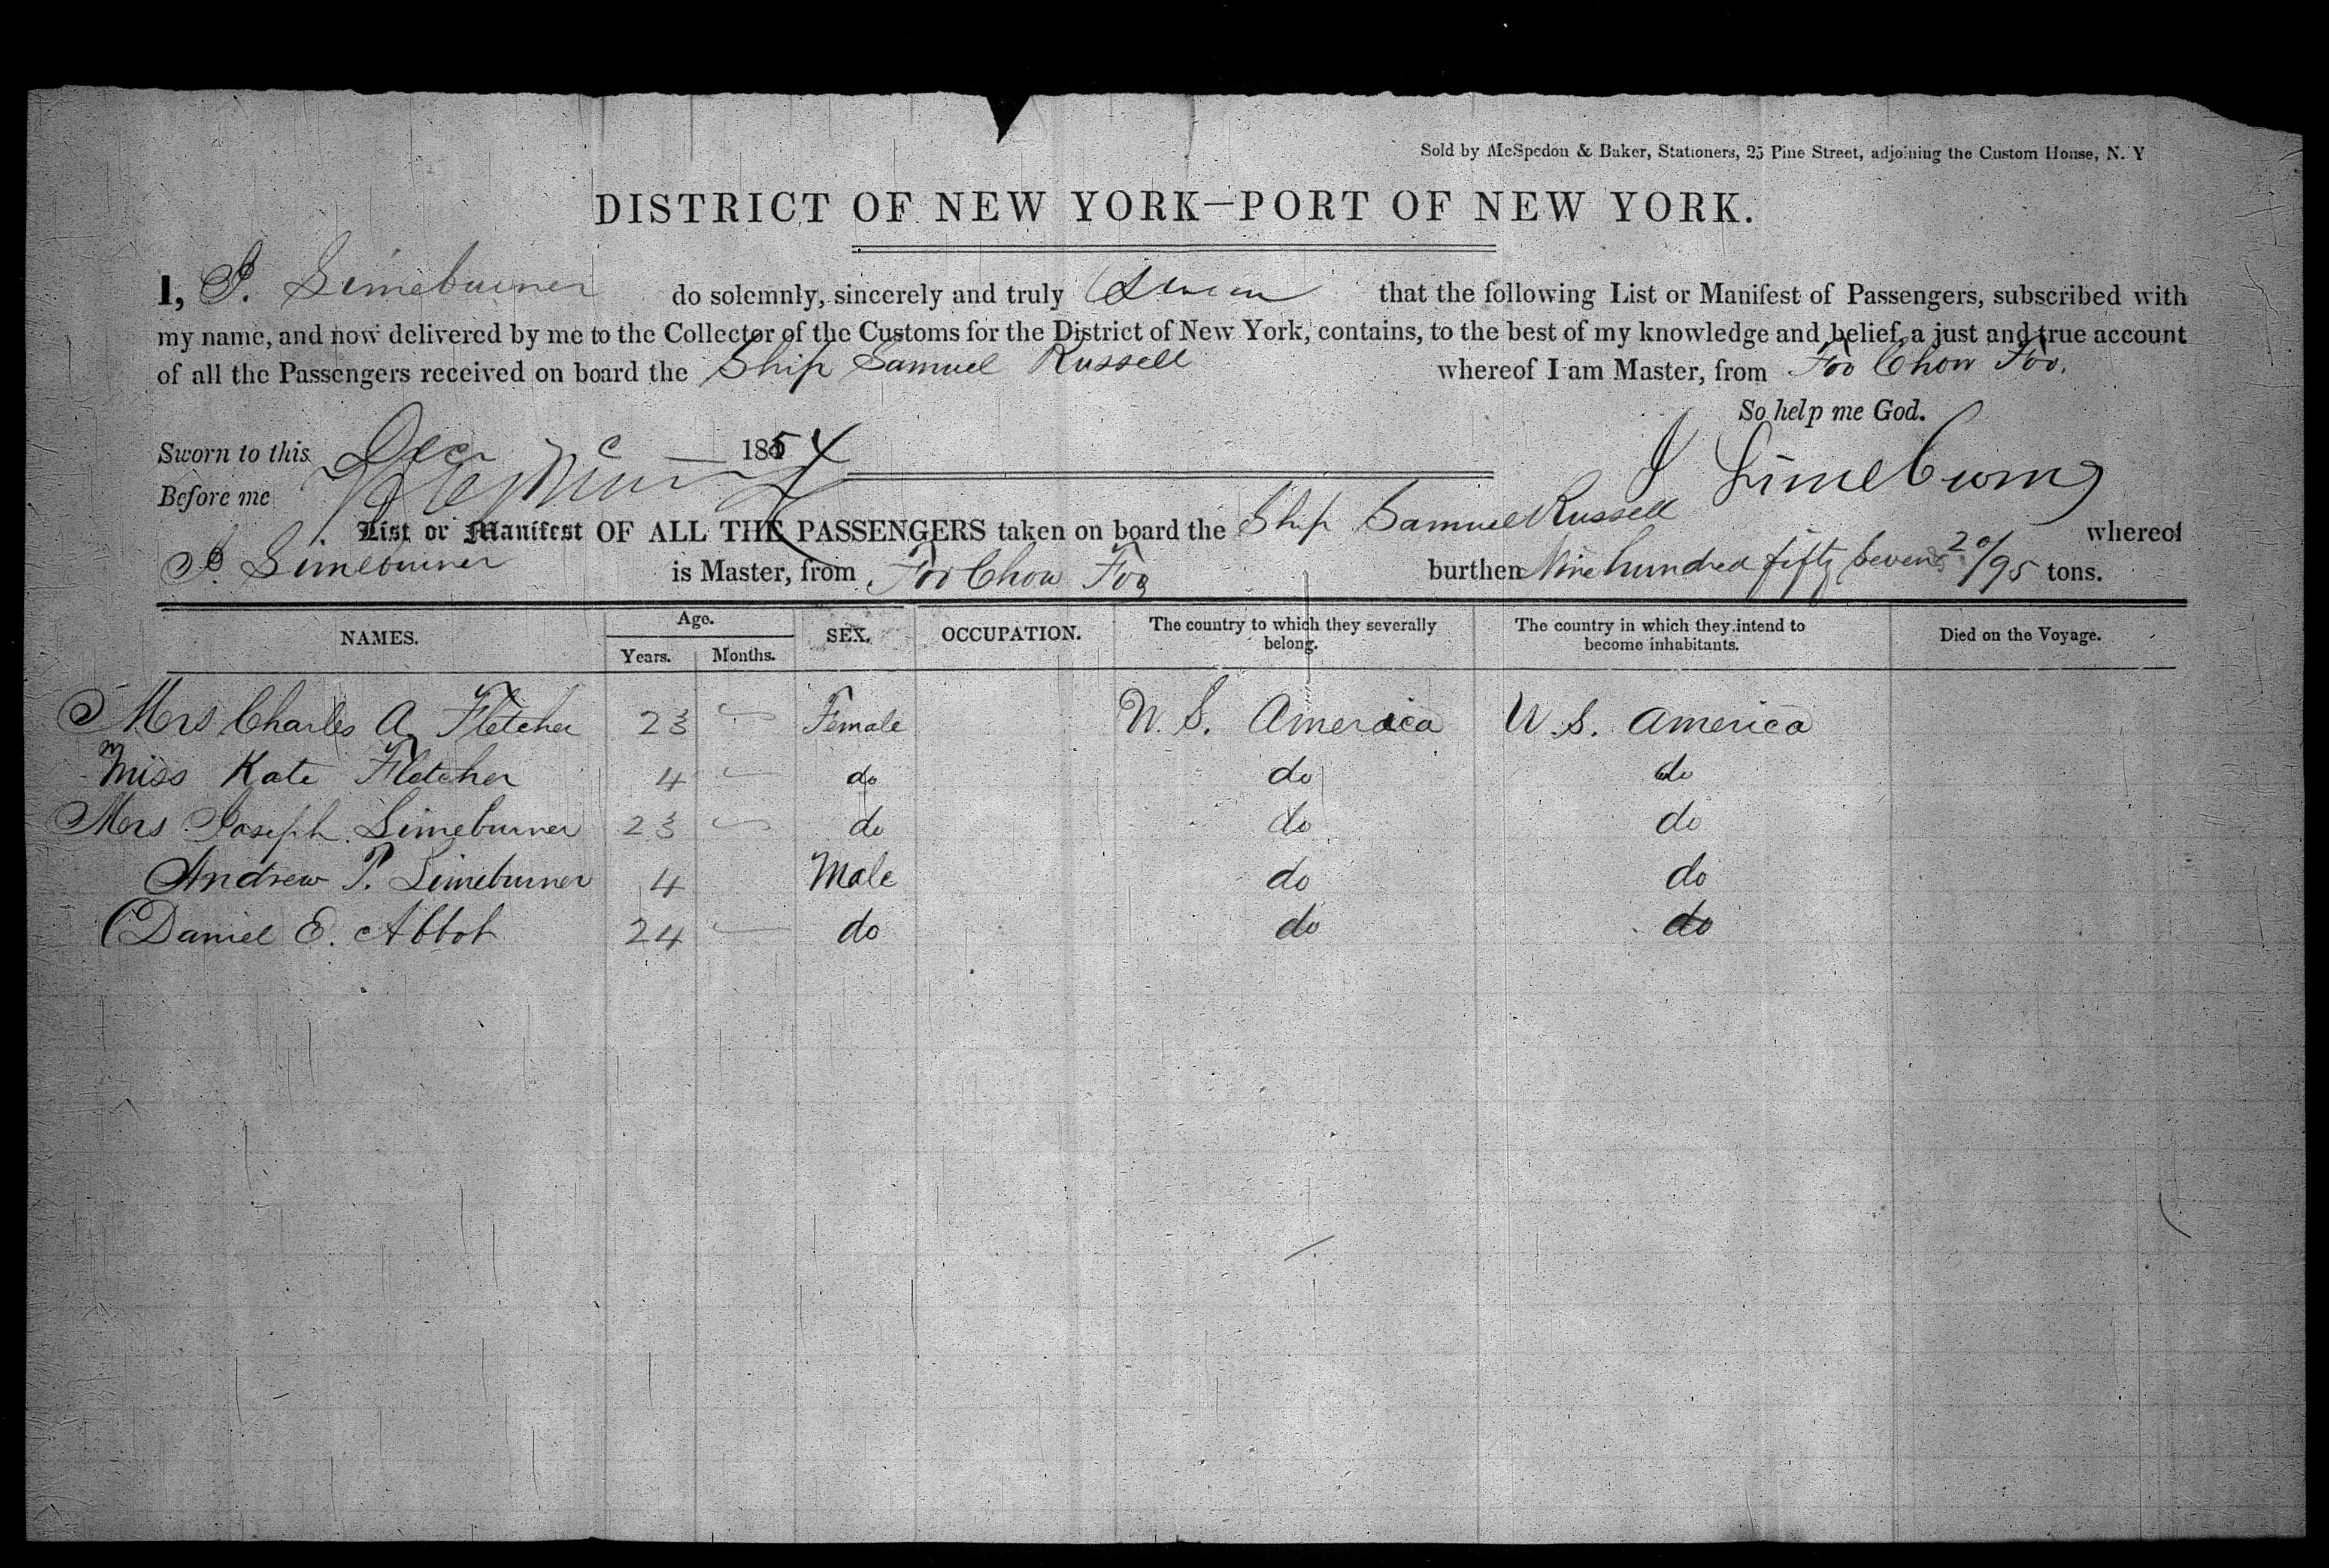 Sold by McSpedon & Baker, Stationers, 25 Pine Street, adjoining the Custom House, N. Y
DISTRICT OF NEW YORK—PORT OF NEW YORK.
I, J. Limeburner do solemnly, sincerely and truly Swear that the following List or Manifest of Passengers, subscribed with
my name, and now delivered by me to the Collector of the Customs for the District of New York, contains, to the best of my knowledge and belief, a just and true account
of all the Passengers received on board the Ship Samuel Russell whereof I am Master, from Foo Chow Foo.
So help me God.
Sworn to this Dec 1854
J Limeburner
Before me
List or Manifest OF ALL THE PASSENGERS taken on board the Ship Samuel Russell whereof
J. Limeburner is Master, from Foo Chow Foo burthen Nine hundred fifty seven 20/95 tons.
NAMES. Age. Years. Months. SEX. OCCUPATION. The country to which they severally belong. The country in which they intend to become inhabitants. Died on the Voyage.
Mrs Charles A. Fletcher 23 Female U. S. America U. S. America
Miss Kate Fletcher 4 do do do
Mrs Joseph Limeburner 23 do do do
Andrew P. Limeburner 4 Male do do
Daniel E. Abbot 24 do do do